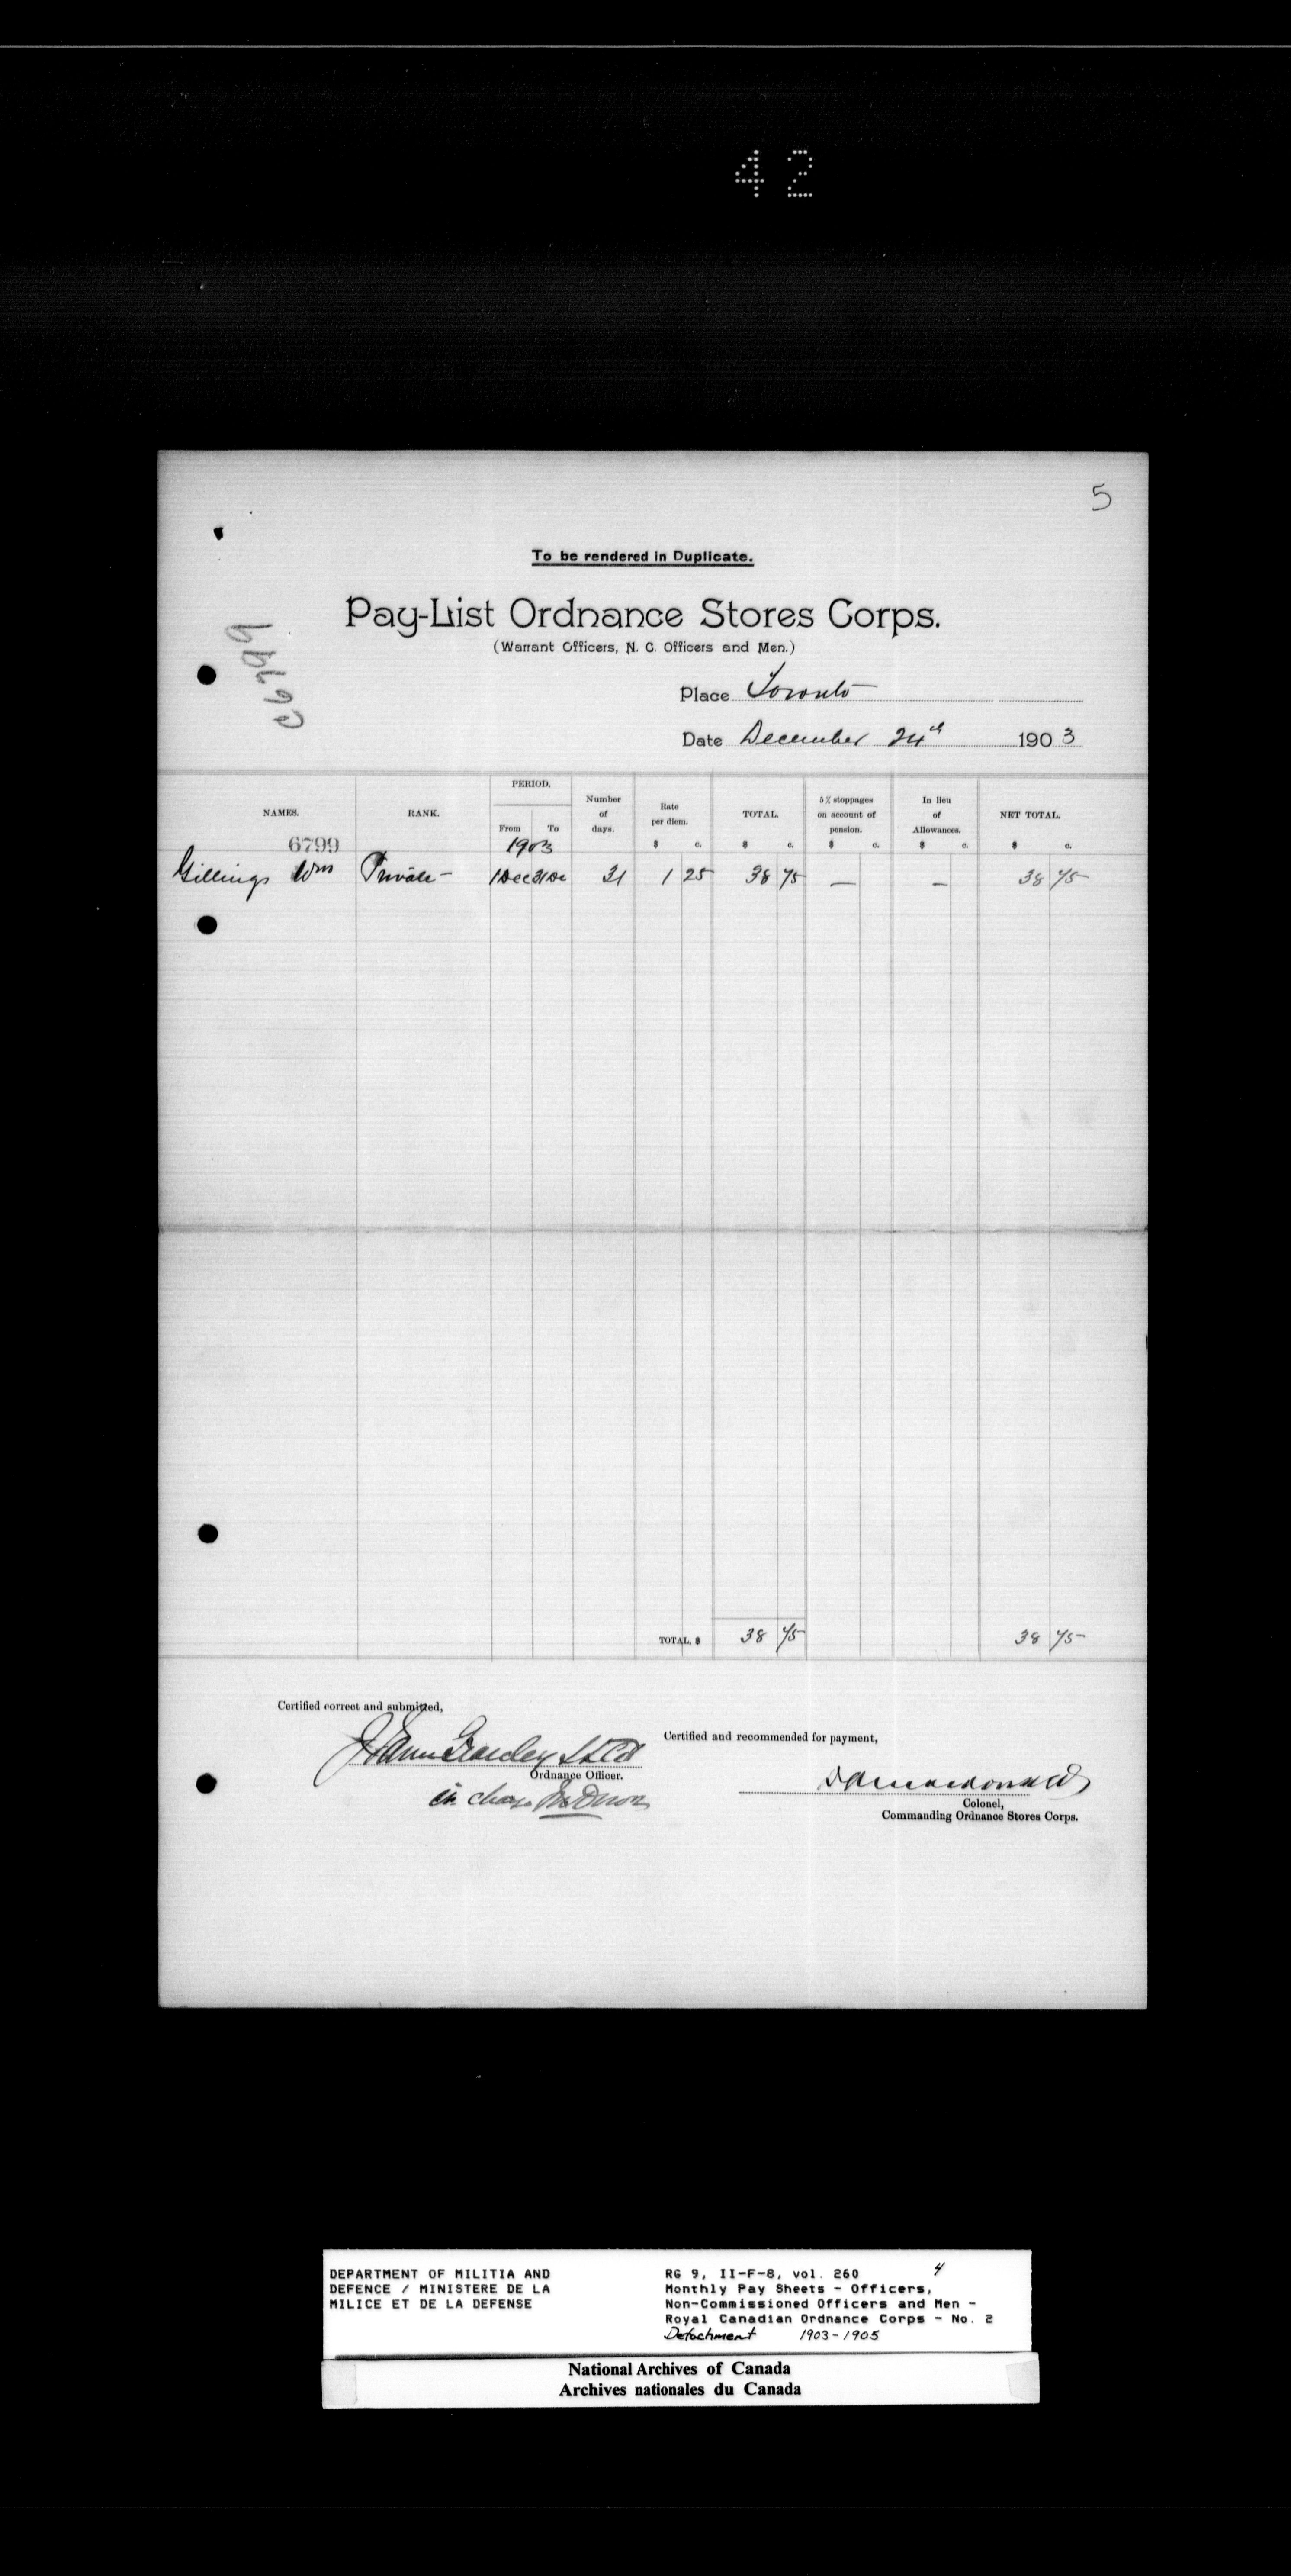 42
5
To be rendered in Duplicate.
Pay-List Ordnance Stores Corps.
(Warrant Officers, N. C. Officers and Men.)
Place Toronto
Date December 24th 1903
NAMES. RANK. PERIOD. From To Number of days. Rate per diem. $ c. TOTAL. $ c. 5% stoppages on account of pension. $ c. In lieu of Allowances. $ c. NET TOTAL. $ c.
6799 1903
Gillings Wm Private 1 Dec 31 De 31 1 25 38 75 — — 38 75
TOTAL, $ 38 75 38 75
Certified correct and submitted,
Lt Col
Ordnance Officer.
in charge
Certified and recommended for payment,
D A Macdonald
Colonel,
Commanding Ordnance Stores Corps.
DEPARTMENT OF MILITIA AND
DEFENCE / MINISTERE DE LA
MILICE ET DE LA DEFENSE
RG 9, II-F-8, vol. 260 4
Monthly Pay Sheets - Officers,
Non-Commissioned Officers and Men -
Royal Canadian Ordnance Corps - No. 2
Detachment 1903-1905
National Archives of Canada
Archives nationales du Canada